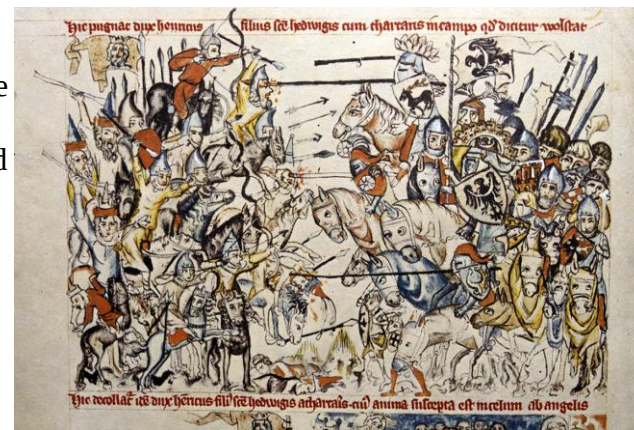 Hic pugnat dux henricus filius sce hedwigis cum thartaris in campo qd dicitur wolstat
e
d
Hic decollat ite dux henricus fili sce hedwigis a thartaris cui anima suscepta est in celum ab angelis